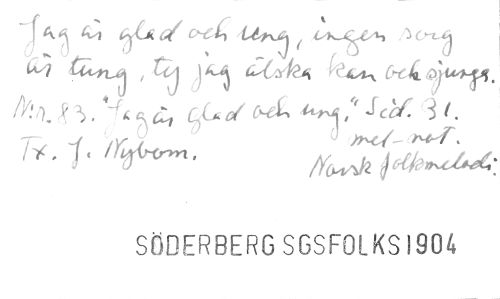 Jag är glad och ung, ingen sorg
är tung, ty jag älska kan och sjunga.
N:r. 83. "Jag är glad och ung." Sid. 31.
mel-not.
Tx. J. Nybom.
Norsk folkmelodi.
SÖDERBERG SGSFOLKS 1904